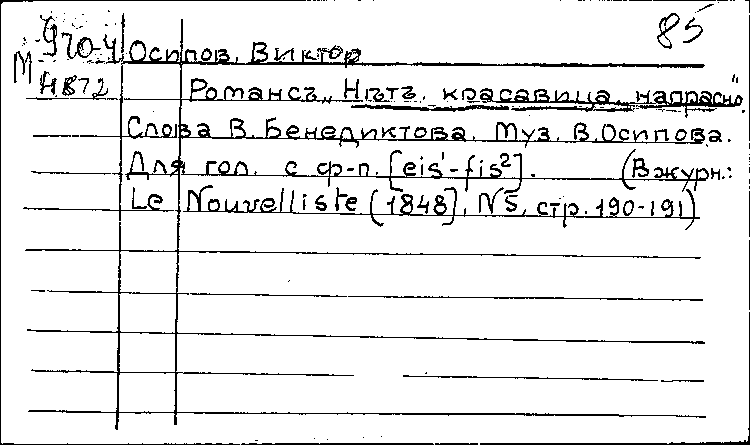 85
М 970-4 Осипов, Виктор
Н872 Романсъ „Нѣтъ, красавица, напрасно".
Слова В. Бенедиктова. Муз. В. Осипова.
Для гол. с ф-п. [eis¹-fis²]. (В журн.:
Le Nouvelliste [1848], №5, стр. 190-191)